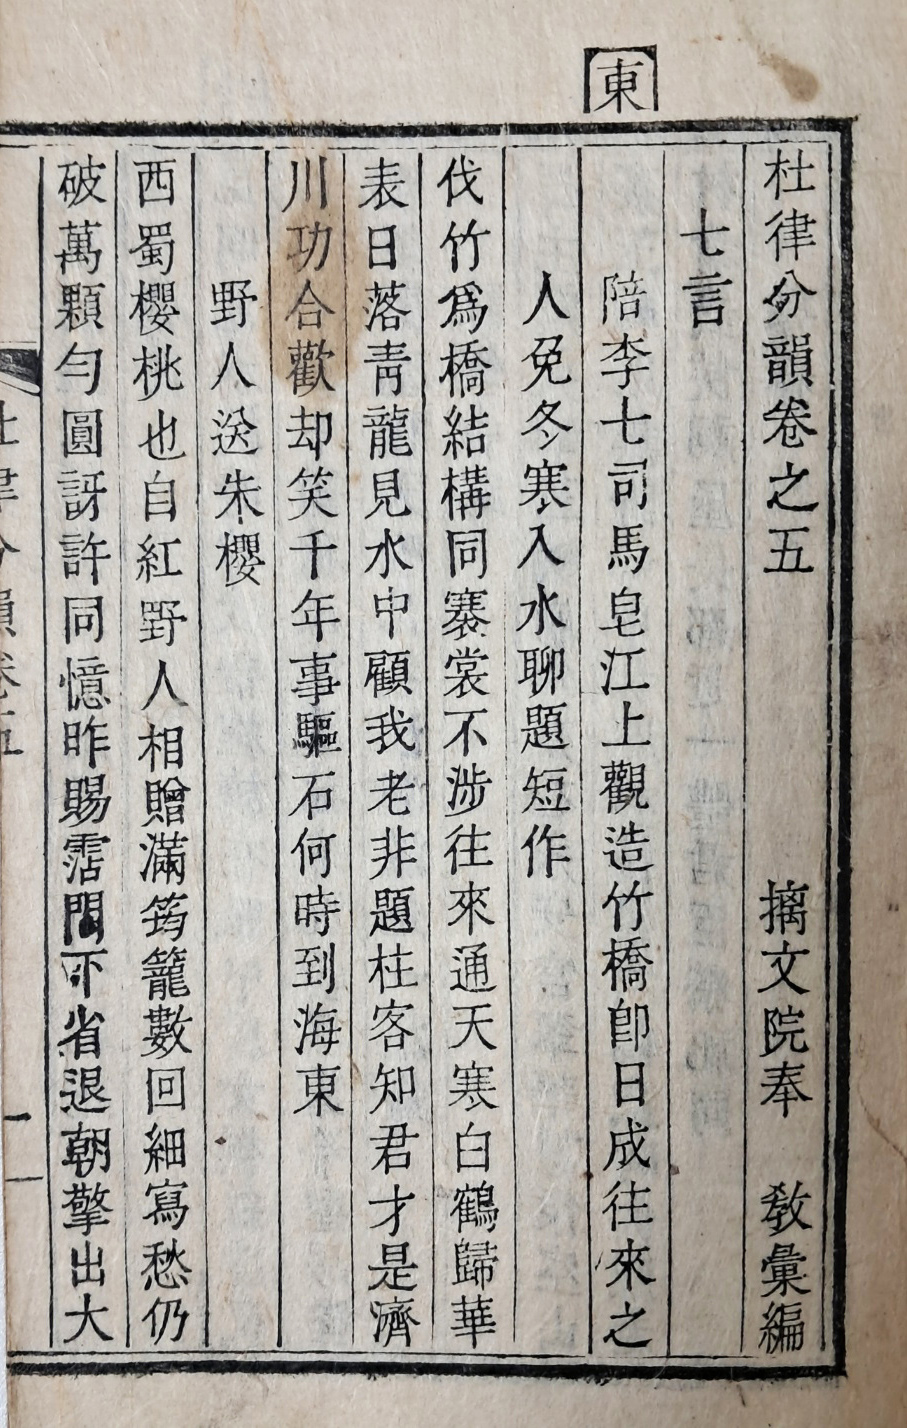 東
杜律分韻卷之五 摛文院奉 敎彙編
七言
陪李七司馬皂江上觀造竹橋卽日成往來之
人免冬寒入水聊題短作
伐竹爲橋結構同褰裳不涉往來通天寒白鶴歸華
表日落靑龍見水中顧我老非題柱客知君才是濟
川功合歡却笑千年事驅石何時到海東
野人送朱櫻
西蜀櫻桃也自紅野人相贈滿筠籠數回細寫愁仍
破萬顆勻圓訝許同憶昨賜霑門下省退朝擎出大